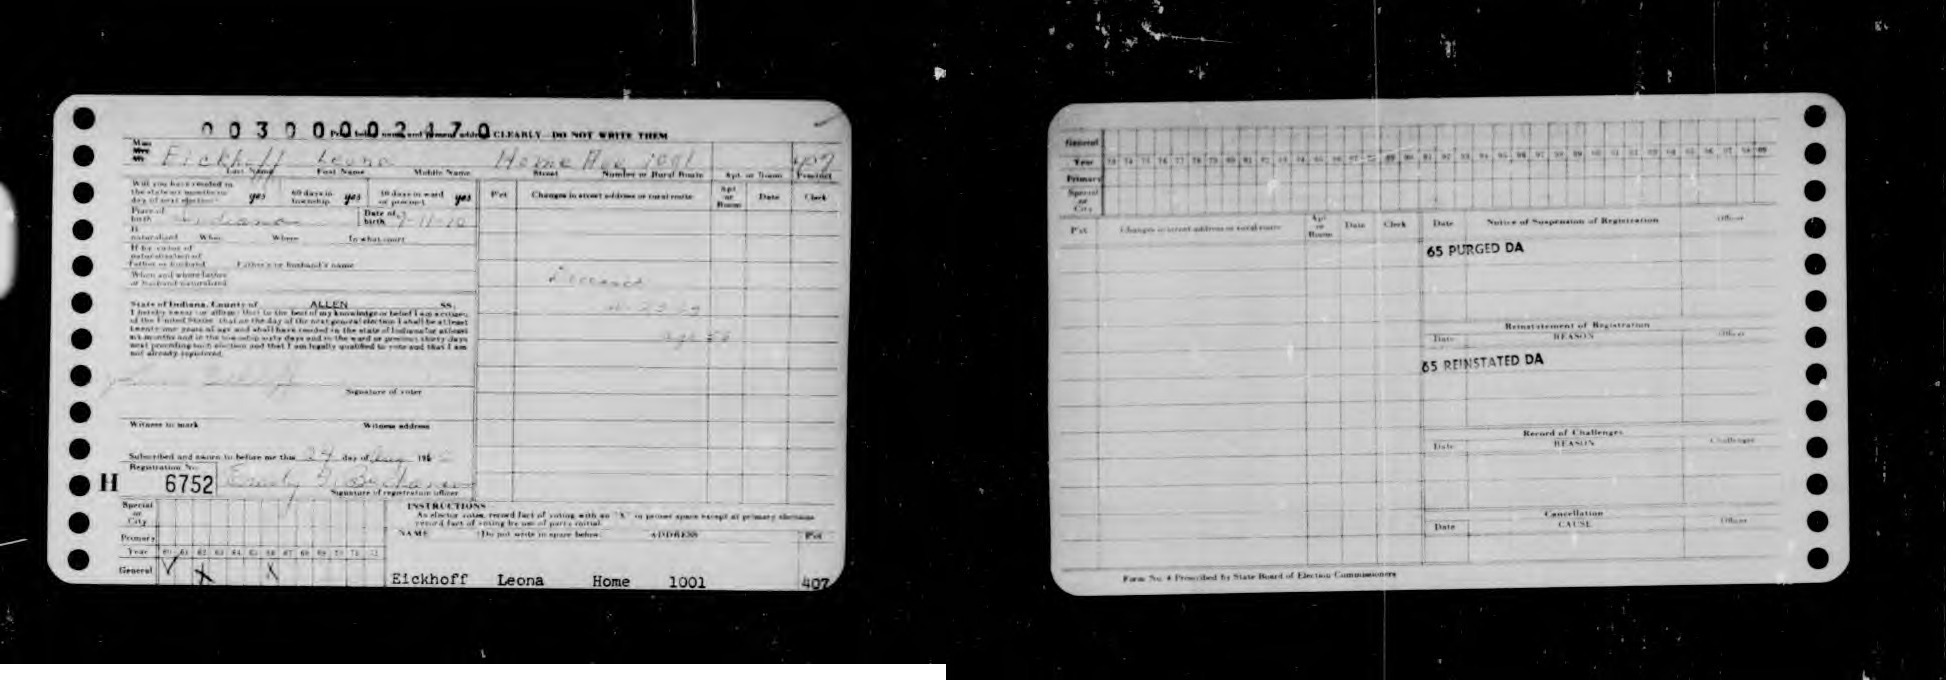 00300002170
Print both name and present address CLEARLY—DO NOT WRITE THEM
Miss
Mrs.
Mr.
Eickhoff Leona Home Ave 1001 407
Last Name First Name Middle Name Street Number or Rural Route Apt. or Room Precinct
Will you have resided in the state six months on day of next election yes 60 days in township yes 30 days in ward or precinct yes
P'ct Changes in street address or rural route Apt. or Room Date Clerk
Place of birth Indiana Date of birth -11-10
If naturalized When Where In what court
If by virtue of naturalization of father or husband Father's or husband's name
When and where father or husband naturalized
Deceased
State of Indiana, County of ALLEN SS.
I hereby swear (or affirm) that to the best of my knowledge or belief I am a citizen
of the United States, that on the day of the next general election I shall be at least
twenty-one years of age and shall have resided in the state of Indiana for at least
six months and in the township sixty days and in the ward or precinct thirty days
next preceding such election and that I am legally qualified to vote and that I am
not already registered.
Age 56
Eickhoff
Signature of voter
Witness to mark Witness address
Subscribed and sworn to before me this 29 day of 19
Registration No.
H 6752 Emily
Signature of registration officer
Special or City
Primary
Year 60 61 62 63 64 65 66 67 68 69 70 71 72
General X X
INSTRUCTIONS
As elector votes, record fact of voting with an "X" in proper space except at primary elections
record fact of voting by use of party initial.
NAME (Do not write in space below) ADDRESS Pct
Eickhoff Leona Home 1001 407
General
Year
Primary
Special or City
P'ct Changes in street address or rural route Apt. or Room Date Clerk
Date Notice of Suspension of Registration Officer
65 PURGED DA
Reinstatement of Registration
Date REASON Officer
65 REINSTATED DA
Record of Challenges
Date REASON Challenger
Cancellation
Date CAUSE Officer
Form No. 4 Prescribed by State Board of Election Commissioners